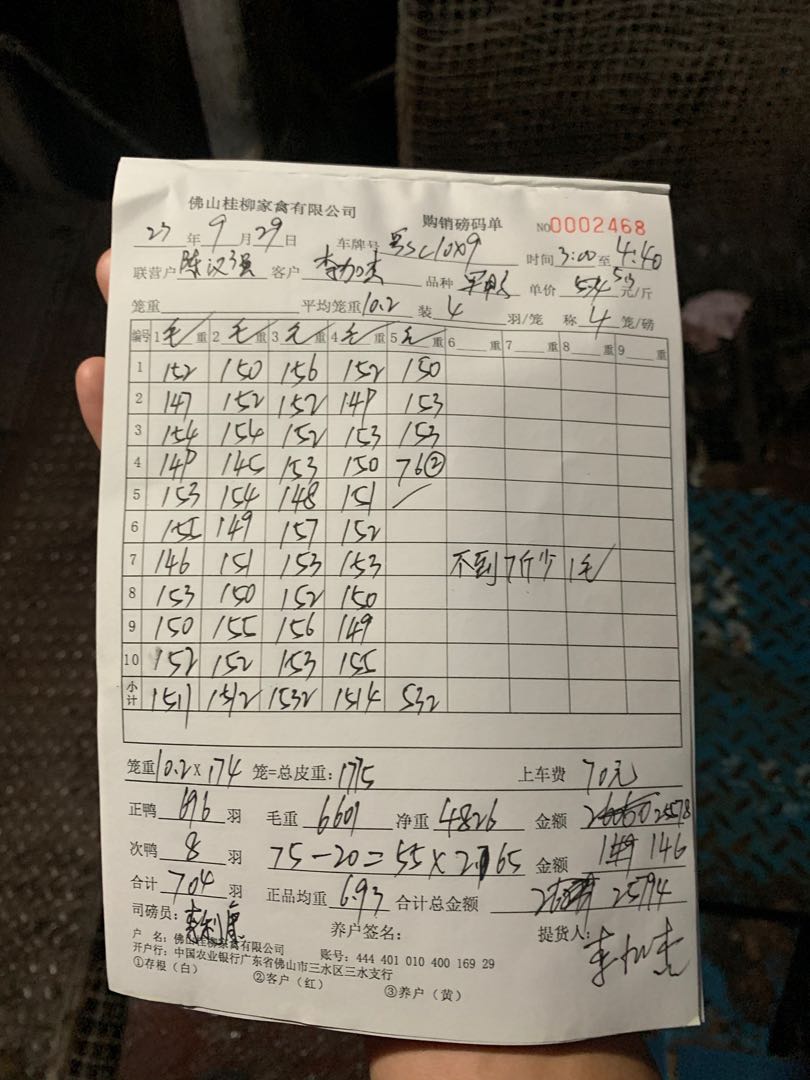 佛山桂柳家禽有限公司 购销磅码单 NO0002468
23年9月29日 车牌号 时间3:00至4:40
联营户陈汉强 客户 品种 单价 5.3元/斤
笼重 平均笼重10.2 装4羽/笼 称4笼/磅
编号 1毛重 2毛重 3毛重 4毛重 5毛重 6重 7重 8重 9重
1 152 150 156 152 150
2 147 152 152 149 153
3 154 154 152 153 153
4 149 145 153 150 76②
5 153 154 148 151
6 155 149 157 152
7 146 151 153 153 不到7斤少1毛
8 153 150 152 150
9 150 155 156 149
10 152 152 153 155
小计 1511 1512 1532 1514 532
笼重10.2×174笼=总皮重:1775 上车费70元
正鸭696羽 毛重6601 净重4826 金额25578
次鸭8羽 75-20=55×2.65 金额146
合计704羽 正品均重6.93 合计总金额25794
司磅员: 养户签名: 提货人:
户 名:佛山桂柳家禽有限公司 账号:444 401 010 400 169 29
开户行:中国农业银行广东省佛山市三水区三水支行
①存根(白) ②客户(红) ③养户(黄)